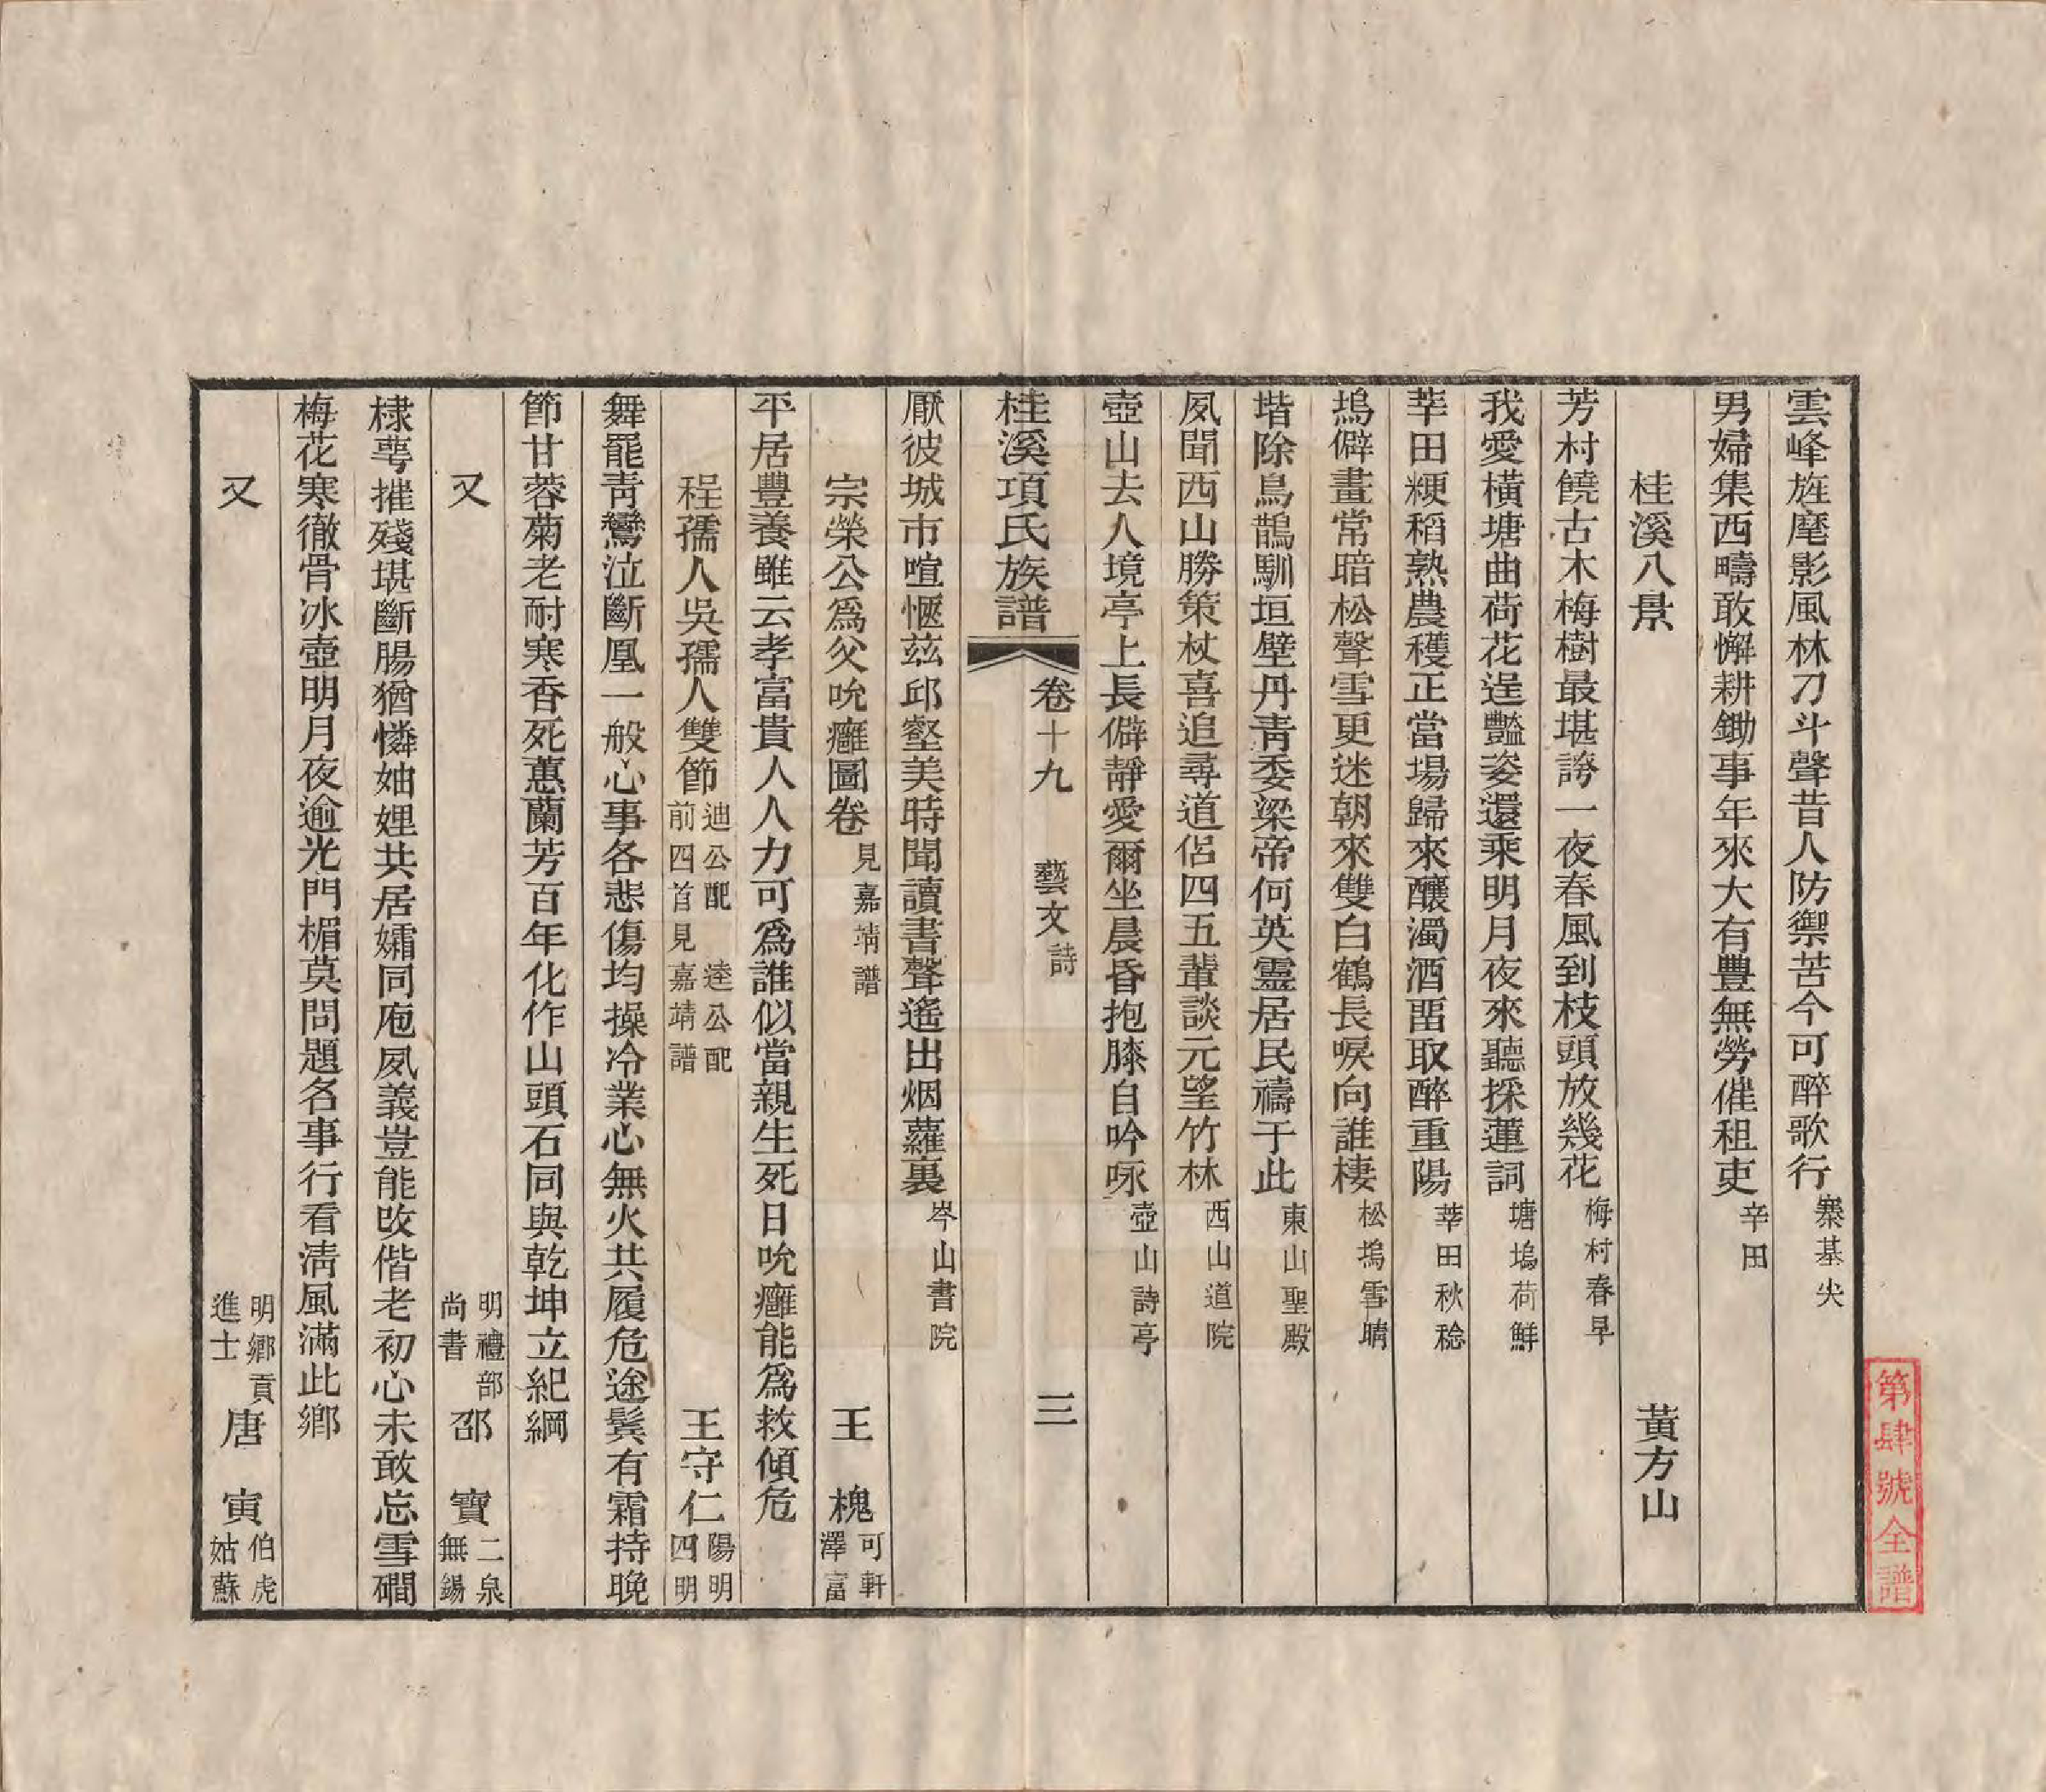 雲峰旌麾影風林刀斗聲昔人防禦苦今可醉歌行寨基尖
男婦集西疇敢懈耕鋤事年來大有豐無勞催租吏辛田
桂溪八景 黃方山
芳村饒古木梅樹最堪誇一夜春風到枝頭放幾花梅村春早
我愛橫塘曲荷花逞豔姿還乘明月夜來聽採蓮詞塘塢荷鮮
莘田粳稻熟農穫正當場歸來釀濁酒畱取醉重陽莘田秋稔
塢僻晝常暗松聲雪更迷朝來雙白鶴長唳向誰棲松塢雪晴
堦除鳥鵲馴垣壁丹靑委梁帝何英靈居民禱于此東山聖殿
夙聞西山勝策杖喜追尋道侶四五輩談元望竹林西山道院
壺山去人境亭上長僻靜愛爾坐晨昏抱膝自吟咏壺山詩亭
桂溪項氏族譜 卷十九 藝文詩 三
厭彼城市喧愜茲邱壑美時聞讀書聲遙出烟蘿裏岑山書院
宗榮公爲父吮癰圖卷見嘉靖譜 王 槐可軒澤富
平居豐養雖云孝富貴人人力可爲誰似當親生死日吮癰能爲救傾危
程孺人吳孺人雙節迪公配 逵公配前四首見嘉靖譜 王守仁陽明四明
舞罷靑鸞泣斷凰一般心事各悲傷均操冷業心無火共履危途鬓有霜持晚
節甘蓉菊老耐寒香死蕙蘭芳百年化作山頭石同與乾坤立紀綱
又 明禮部尚書 邵 寶二泉無錫
棣萼摧殘堪斷腸猶憐妯娌共居孀同庖夙義豈能改偕老初心未敢忘雪磵
梅花寒徹骨冰壺明月夜逾光門楣莫問題名事行看淸風滿此鄉
又 明鄉貢進士 唐 寅伯虎姑蘇
第肆號全譜